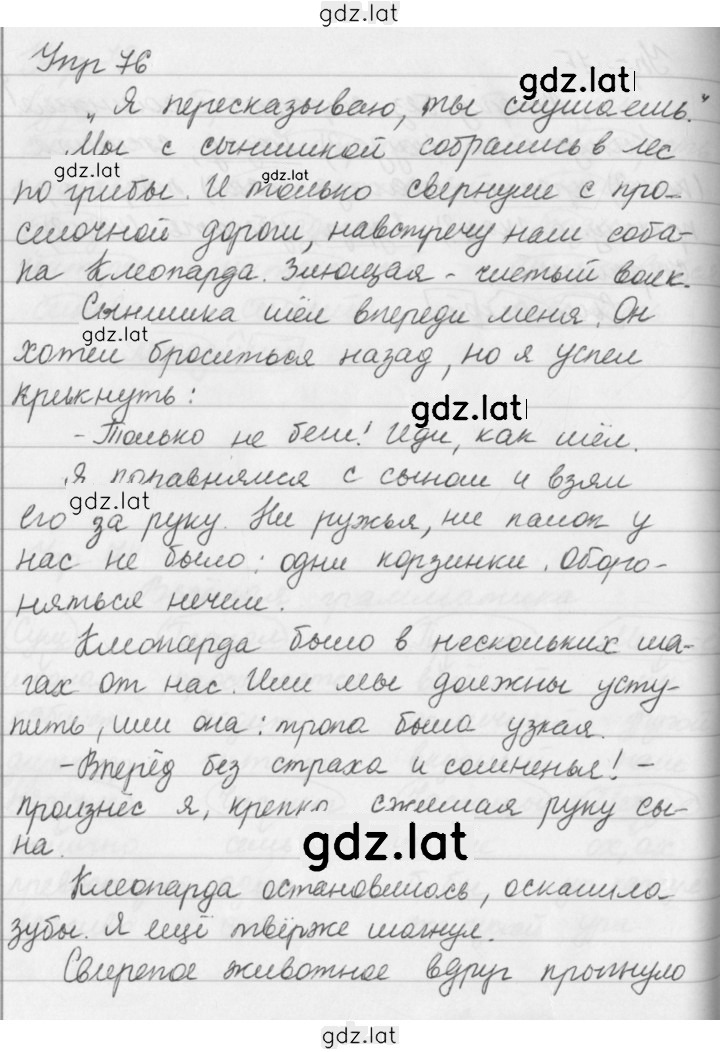 gdz.lat
Упр 76
gdz.lat
„Я пересказываю, ты слушаешь."
Мы с сынишкой собрались в лес
gdz.lat gdz.lat
по грибы. И только свернули с про-
селочной дороги, навстречу нам соба-
ка Клеопарда. Злющая - чистый волк.
Сынишка шёл впереди меня. Он
gdz.lat
хотел броситься назад, но я успел
крикнуть:
gdz.lat
- Только не беги! Иди, как шёл.
Я поравнялся с сыном и взял
gdz.lat
его за руку. Ни ружья, ни палок у
нас не было: одни корзинки. Оборо-
няться нечем.
Клеопарда было в нескольких ша-
гах от нас. Или мы должны усту-
пить, или она: тропа была узкая.
- Вперёд без страха и сомненья! -
произнёс я, крепко сжимая руку сы-
на.
gdz.lat
Клеопарда остановилась, оскалила
зубы. Я ещё твёрже шагнул.
Свирепое животное вдруг прыгнуло
gdz.lat